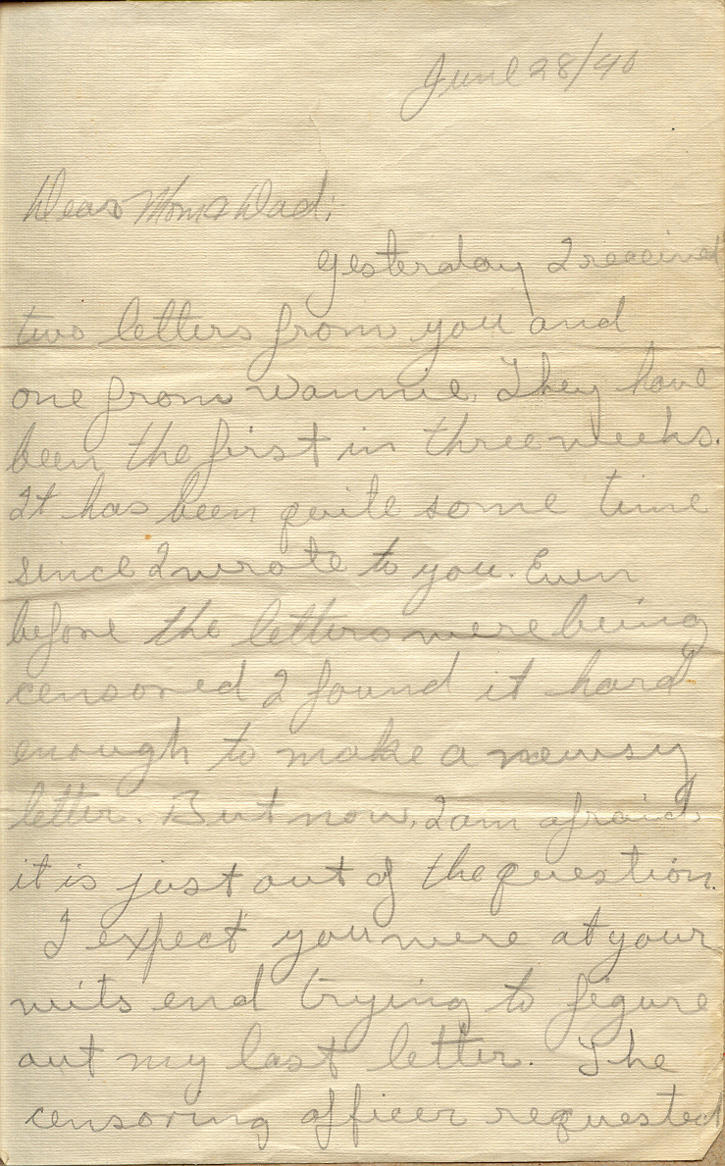 June 28/40
Dear Mom & Dad;
Yesterday I received
two letters from you and
one from Wannie. They have
been the first in three weeks.
It has been quite some time
since I wrote to you. Even
before the letters were being
censored I found it hard
enough to make a newsy
letter. But now, I am afraid
it is just out of the question.
I expect you were at your
wits end trying to figure
out my last letter. The
censoring officer requested